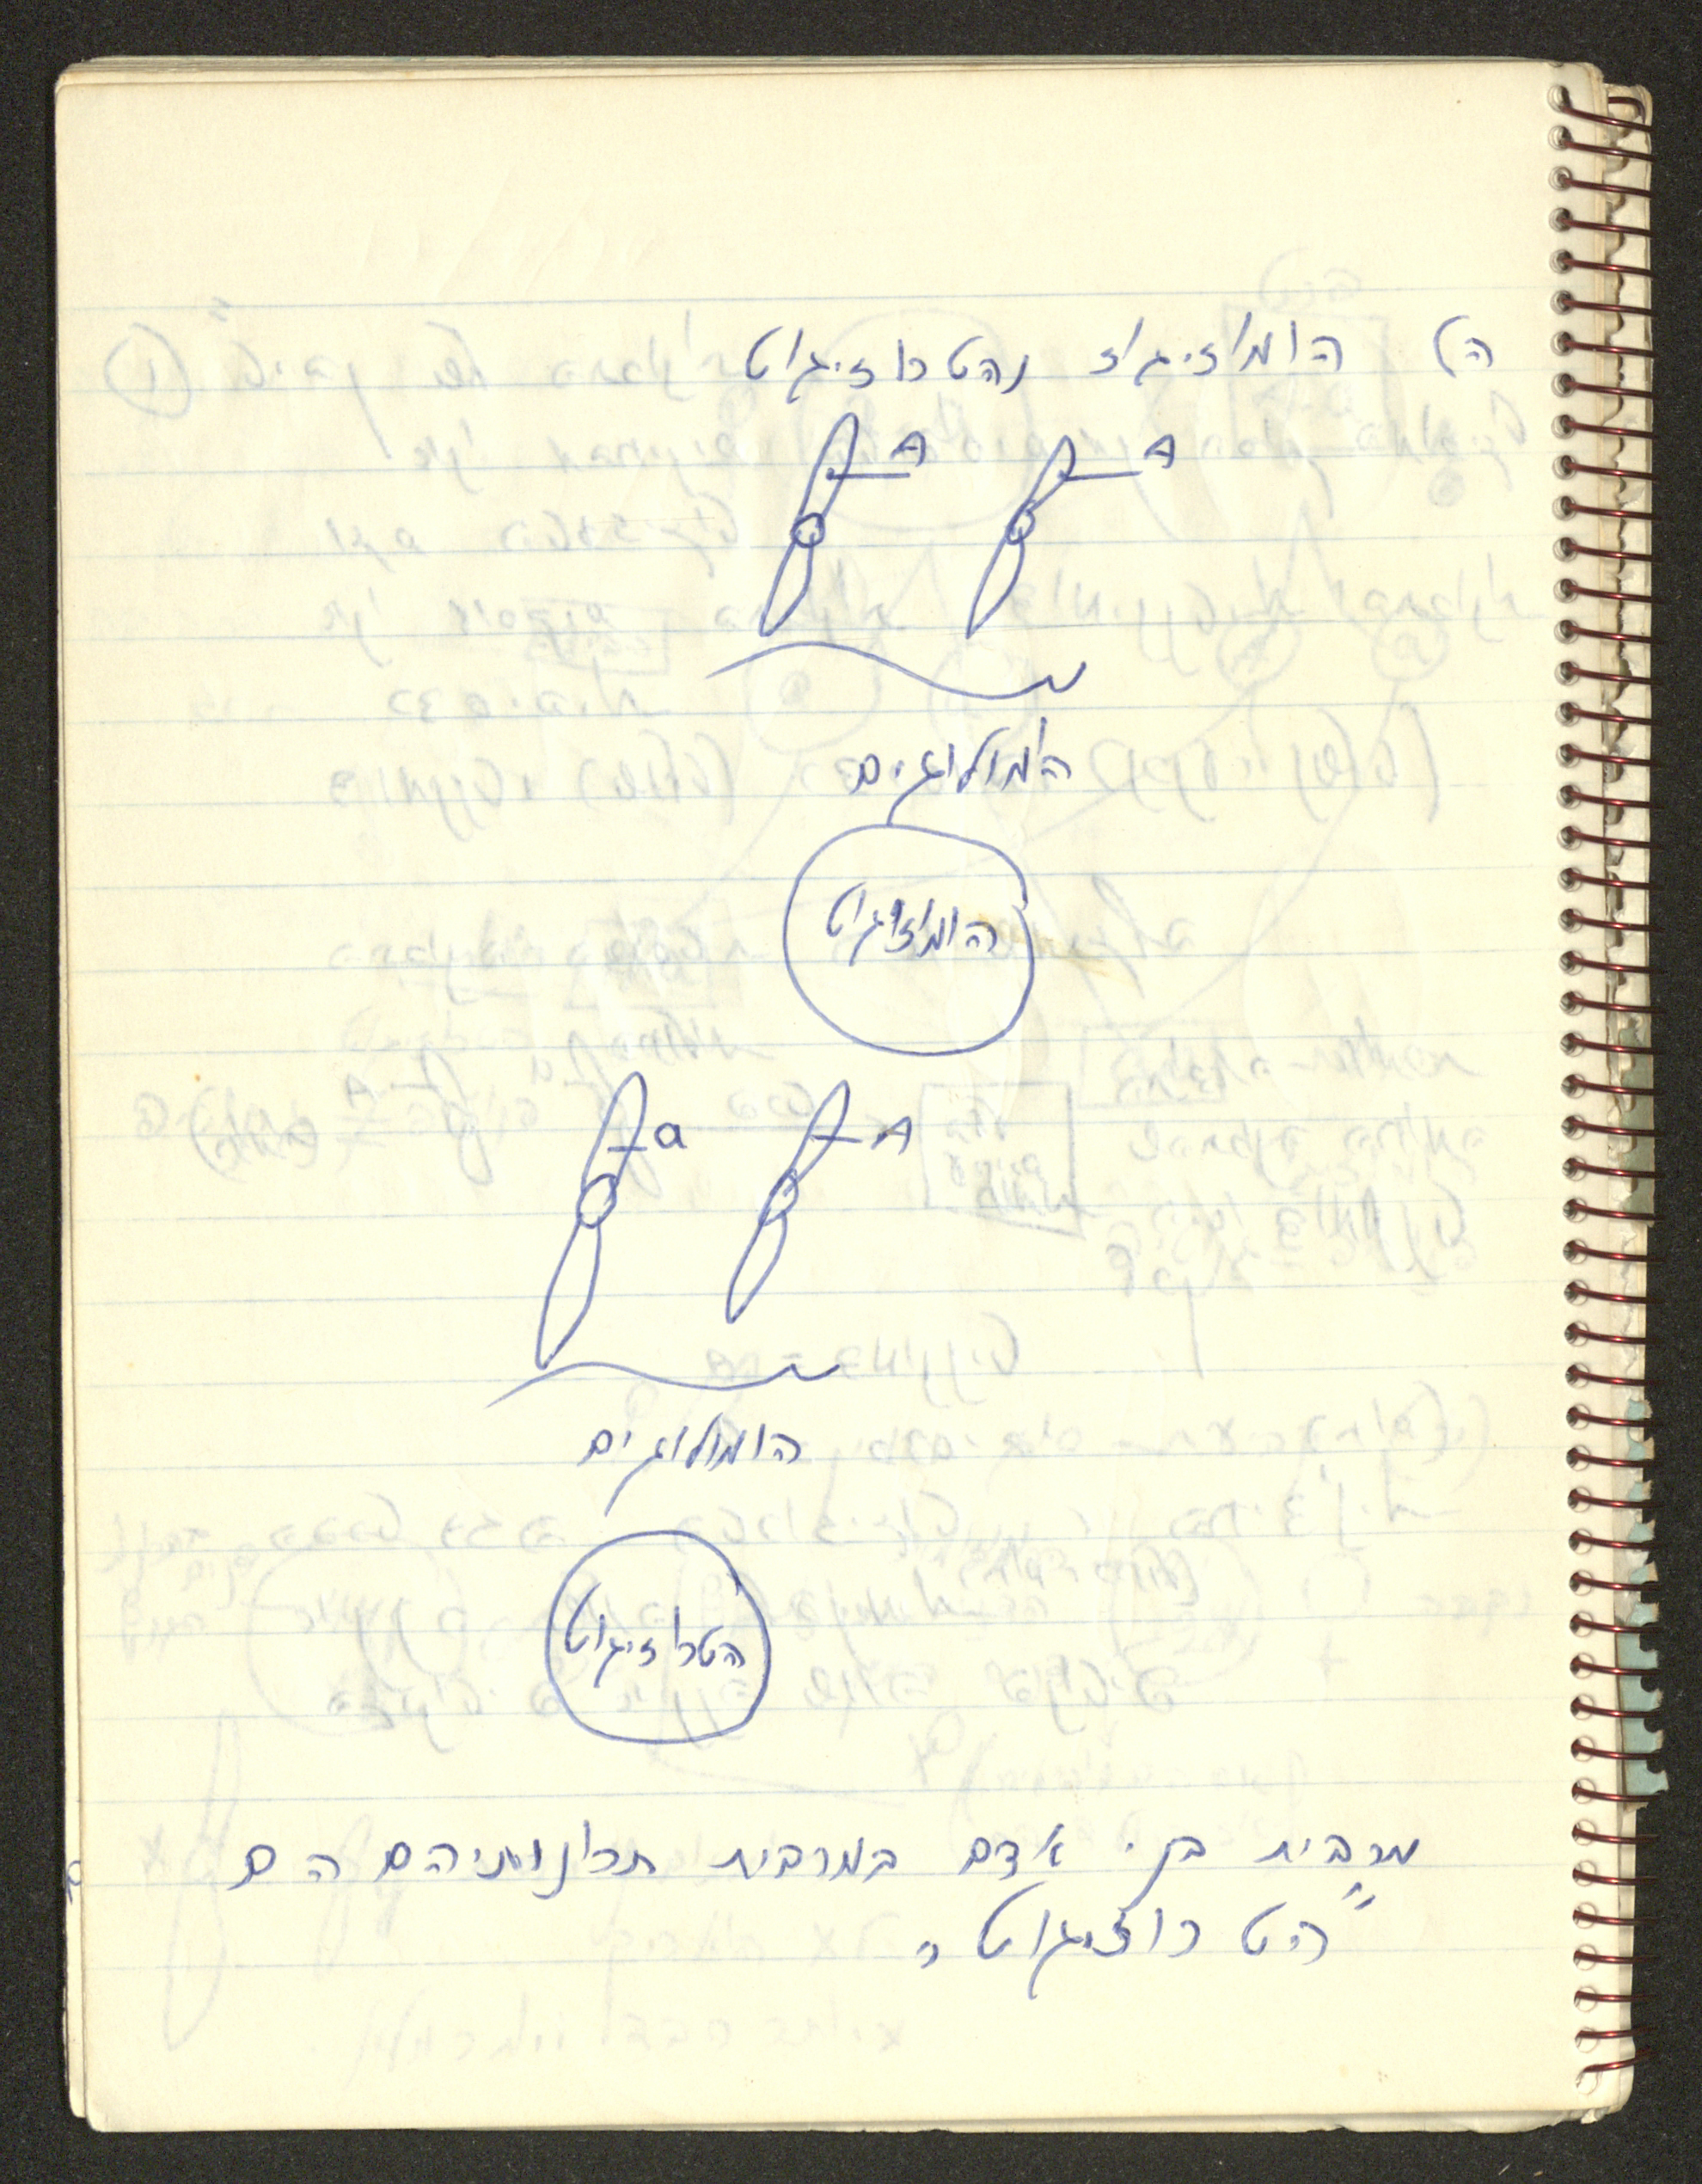 ה) הומוזיגוז והטרוזיגוט
A A
הומולוגים
הומוזיגוט
a A
הומולוגים
הטרוזיגוט
מרבית בני אדם במרבית תכונותיהם הם
"הטרוזיגוט"